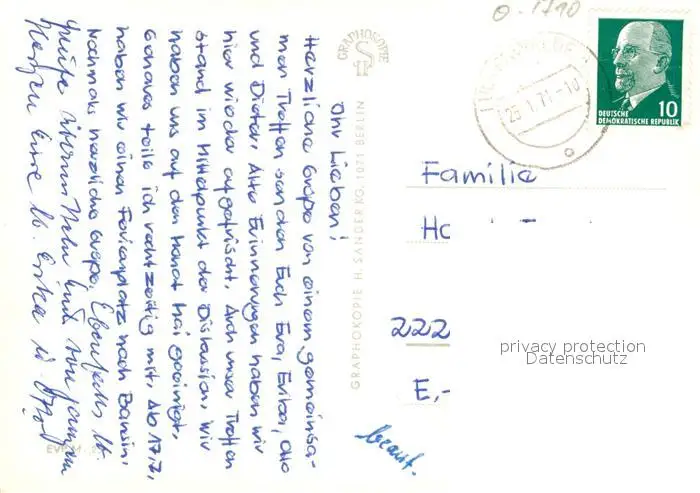 Ihr Lieben!
Herzliche Grüße von einem gemeinsa-
men Treffen senden Euch Eva, Erika, Otto
und Dieter. Alte Erinnerungen haben wir
hier wieder aufgefrischt. Auch unser Treffen
stand im Mittelpunkt der Diskussion. Wir
haben uns auf den Monat Mai geeinigt,
Genaues teile ich rechtzeitig mit. Ab 17.7.
haben wir einen Ferienplatz nach Bansin.
Nochmals herzliche Grüße,
Ebenfalls lb.
Grüße
Herzen Eure lb. Erika u.
GRAPHOKOPIE
GRAPHOKOPIE H. SANDER KG, 1071 BERLIN
EVP M
0-1710
25.1.71-10
10
DEUTSCHE
DEMOKRATISCHE REPUBLIK
Familie
Ho
222
E,-
beant.
privacy protection
Datenschutz